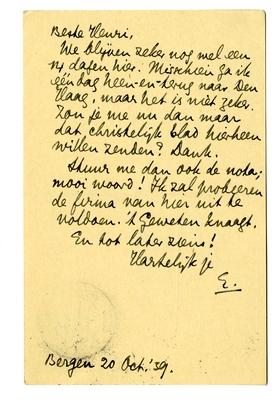 Beste Henri,
We blijven zeker nog wel een
tx dagen hier. Misschien ga ik
ééndag heen-en-terug naar Den
Haag, maar het is niet zeker.
Zou je me nu dan maar
dat christelijk blad hierheen
willen zenden? Dank.
Stuur me dan ook de nota;
mooi woord! Ik zal probeeren
de firma van hier uit te
voldoen. 't Geweten knaagt.
En tot later ziens!
Hartelijk je
E.
Bergen 20 Oct. '39.